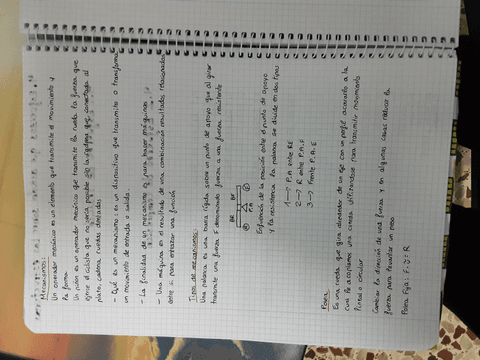 Mecanismos:
Un operador mecánico es un elemento que transmite el movimiento y
la forma
Un piñon es un operador mecánico que transmite la rueda la fuerza que
ejerce el ciclista que no sería posible sin la cadena que conectada al
plato, cadena y ruedas dentadas.
- Qué es un mecanismo: es un dispositivo que transmite o transforma
un movimiento de entrada o salida.
- La finalidad de un mecanismo es para hacer máquinas
- Una máquina es el resultado de una combinación resultados relacionados
entre si para enfatizar una función
Tipos de mecanismos:
Una palanca es una barra rígida sobre un punto de apoyo que al girar
transmite una fuerza F denominada fuerza a una fuerza resistente
BR BF
R P.A F
En función de la posición entre el punto de apoyo
y la resistencia la palanca se divide en dos tipos
1 → P.A entre RF
2 → R entre P.A.F
3 → Frente P.A.E
Polea
Es una rueda que gira alrededor de un eje con un perfil acanalado a la
cual le acoplamos una correa utilizandose para transmitir movimiento
lineal o circular
Cambiar la dirección de una fuerza y en algunos casos reducir la
fuerza para levantar un peso
Polea Fija: F = R